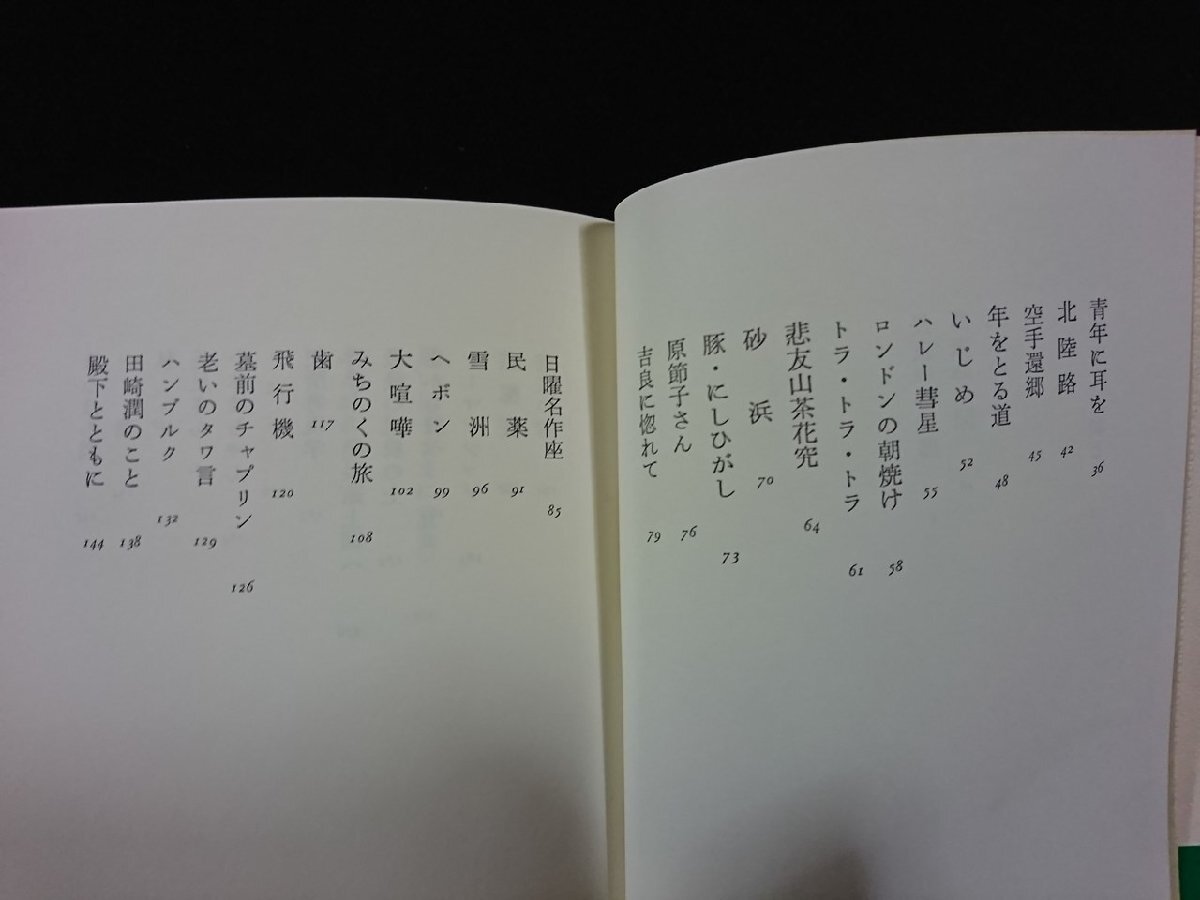 青年に耳を 36
北陸路 42
空手還郷 45
年をとる道 48
いじめ 52
ハレー彗星 55
ロンドンの朝焼け 58
トラ・トラ・トラ 61
悲友山茶花究 64
砂浜 70
豚・にしひがし 73
原節子さん 76
吉良に惚れて 79
日曜名作座 85
民薬 91
雪洲 96
ヘボン 99
大喧嘩 102
みちのくの旅 108
歯 117
飛行機 120
墓前のチャプリン 126
老いのタワ言 129
ハンブルク 132
田崎潤のこと 138
殿下とともに 144